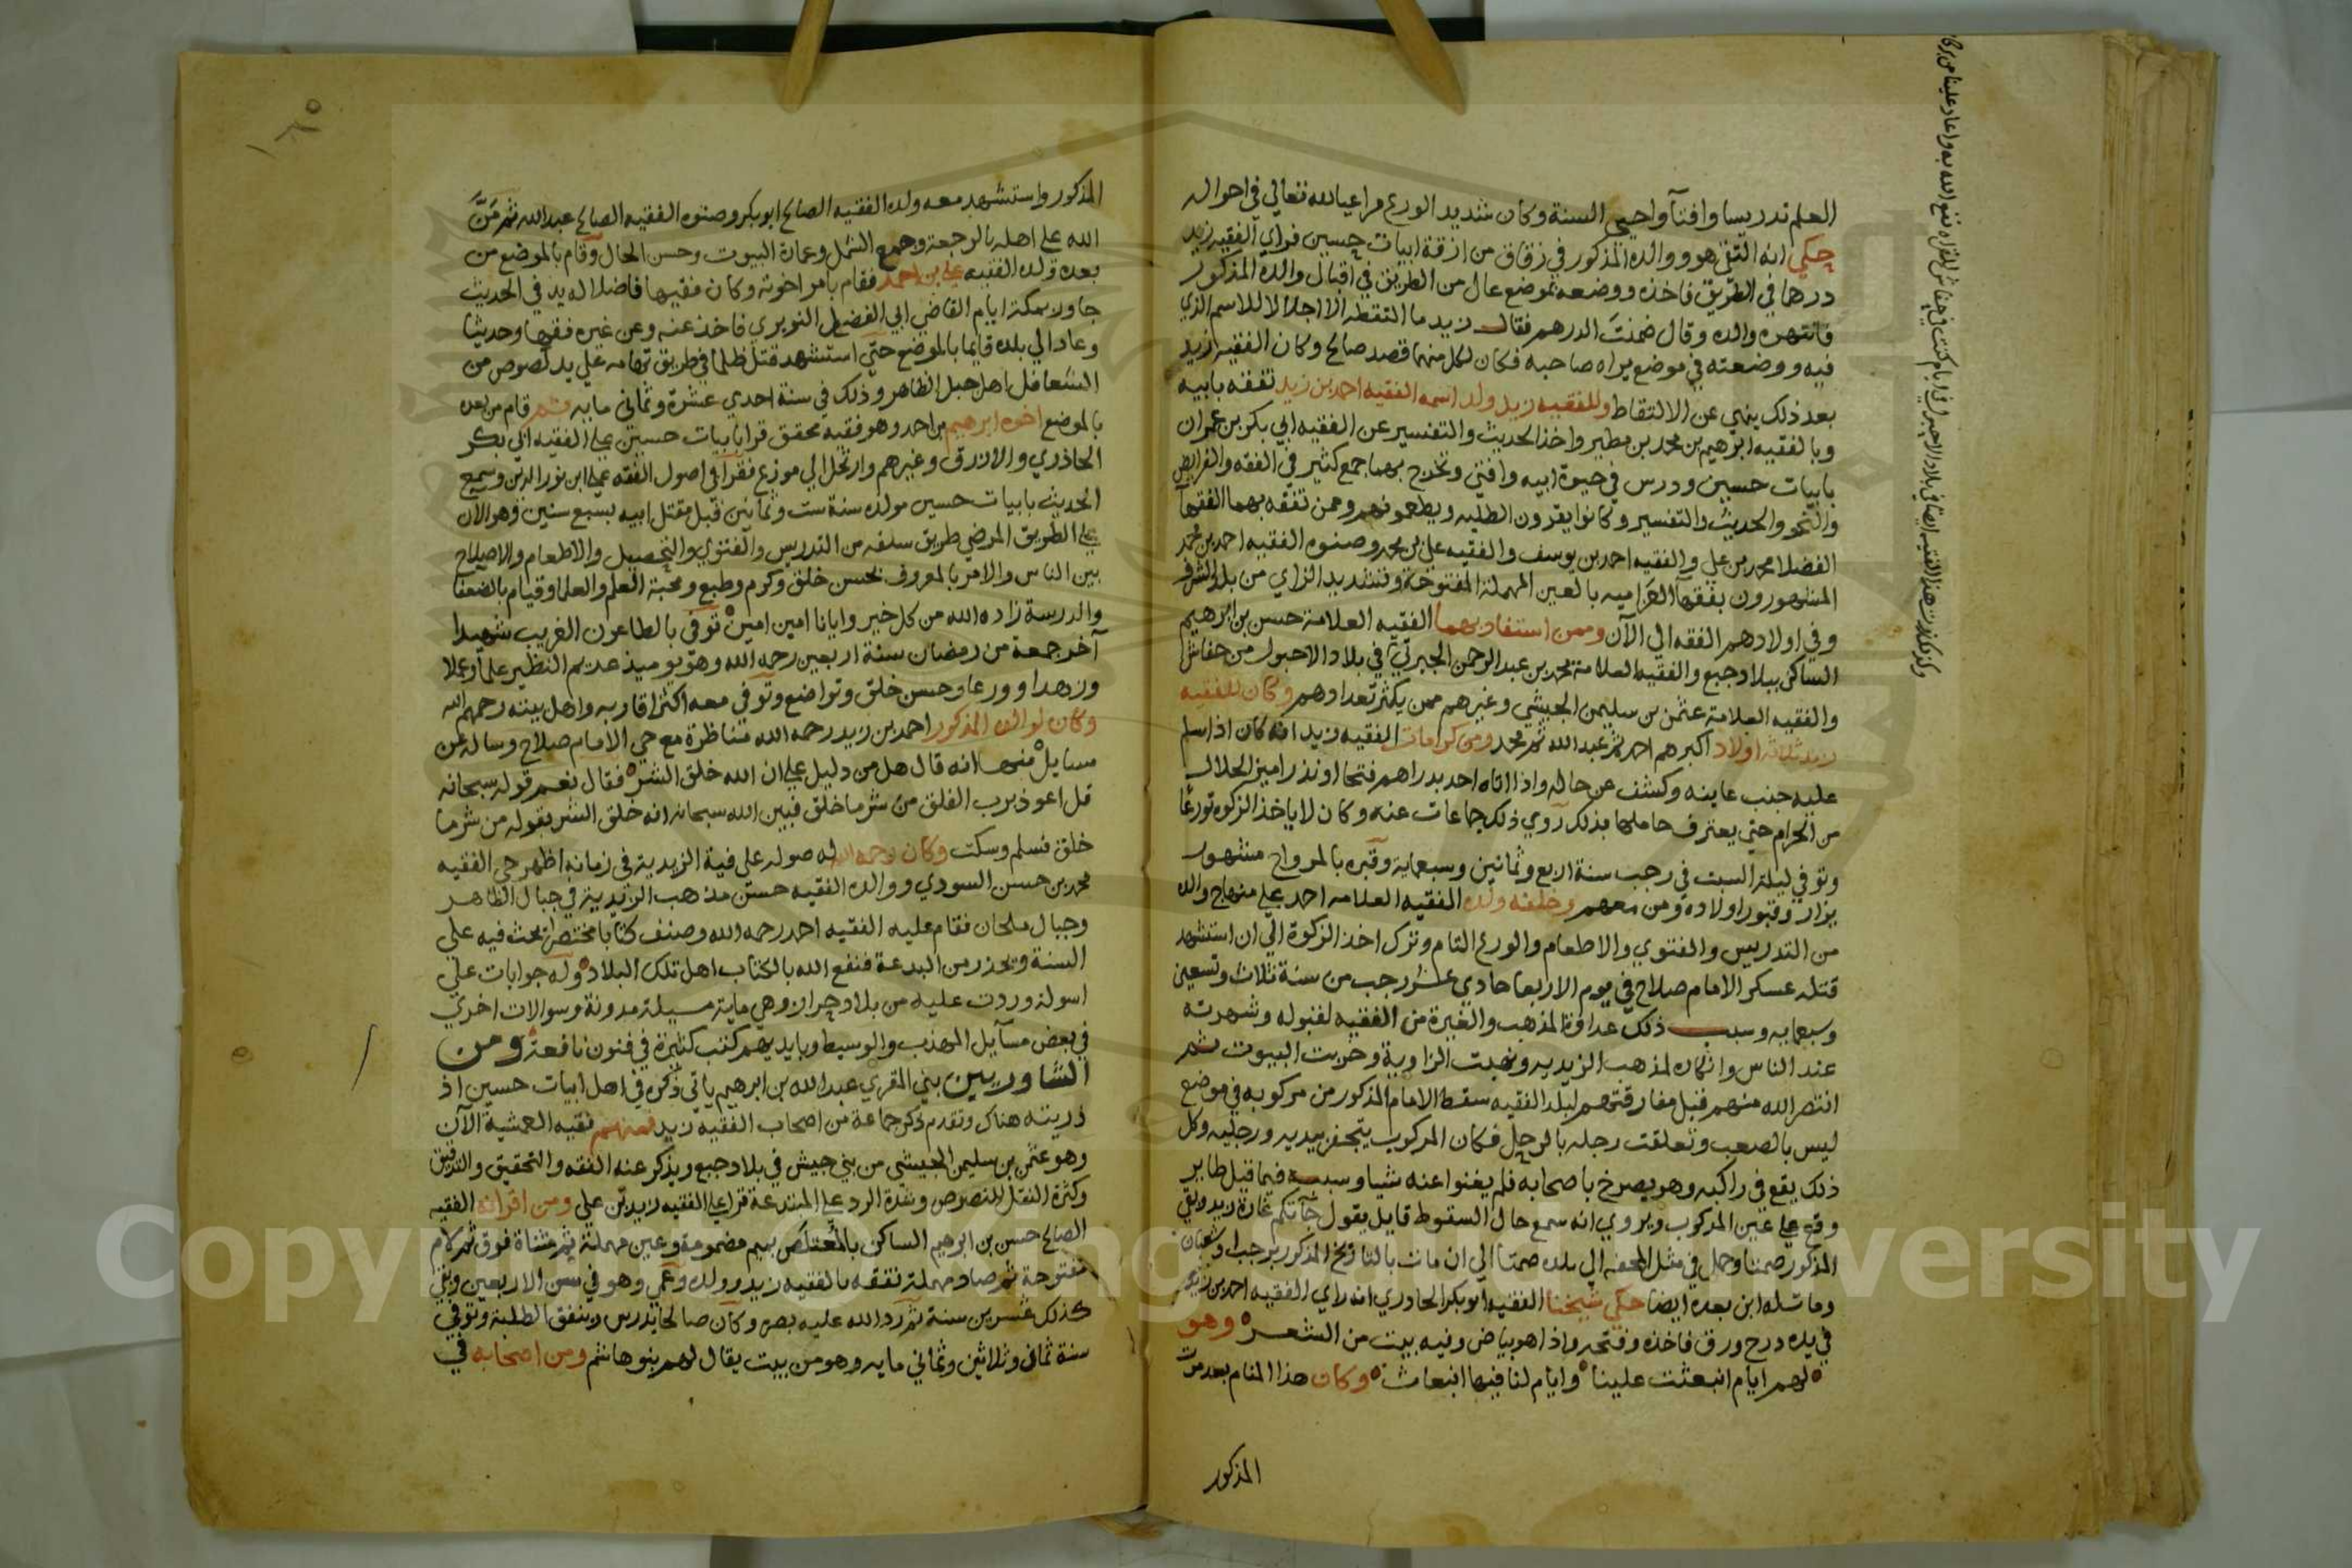 العلم تدريسا وافتآ واحيى السنة وكان شديد الورع مراعيا لله تعالى في احواله
حكي انه التقى هو ووالده المذكور في زقاق من ازقة ابيات حسين فراي الفقيه زيد
درهما في الطريق فاخذه ووضعه بموضع عال من الطريق في اقبال والده المذكور
فانتهره والده وقال ضمنت الدرهم فقال زيد ما التقطه الا اجلالا للاسم الذي
فيه ووضعته في موضع يراه صاحبه فكان لكل منهما قصد صالح وكان الفقيه زيد
بعد ذلك ينهي عن الالتقاط وللفقيه زيد ولد اسمه الفقيه احمد بن زيد تفقه بابيه
وبالفقيه ابرهيم بن محمد بن مطير واخذ الحديث والتفسير عن الفقيه ابي بكر بن عمران
بابيات حسين ودرس في حيوة ابيه وافتى وتخرج بهما جمع كثير في الفقه والفرايض
والنحو والحديث والتفسير وكانوا يقرون الطلبه ويطعمونهم وممن تفقه بهما الفقهآ
الفضلا محمد بن علي والفقيه احمد بن يوسف والفقيه علي بن محمد وصنوه الفقيه احمد بن محمد
المشهورون بفقهآ العزاميه بالعين المهملة المفتوحة وتشديد الزاي من بلد الشرف
وفي اولادهم الفقه الى الآن وممن استفاد بهما الفقيه العلامة حسن بن ابرهيم
الساكن ببلاد جبع والفقيه العلامة محمد بن عبد الرحمن الجبرتي في بلاد الاحبول من حفاش
والفقيه العلامة عثمن بن سليمن الجيشي وغيرهم ممن يكثر تعدادهم وكان للفقيه
زيد ثلاثة اولاد اكبرهم احمد ثم عبد الله ثم محمد ومن كرامات الفقيه زيد انه كان اذا سلم
عليه جنب عاينه وكشف عن حاله واذا اتاه احد بدراهم فتحا او نذرا ميز الحلال
من الحرام حتى يعترف حاملها بذلك روي ذلك جماعات عنه وكان لا ياخذ الزكوة تورعا
وتوفي ليلة السبت في رجب سنة اربع وثمانين وسبعماية وقبره بالمرواح مشهور
يزار وقبور اولاده ومن معهم وخلفه ولده الفقيه العلامه احمد على منهاج والده
من التدريس والفتوي والاطعام والورع التام وترك اخذ الزكوة الى ان استشهد
قتله عسكر الامام صلاح في يوم الاربعا حادي عشر رجب من سنة ثلاث وتسعين
وسبعمايه وسبب ذلك عداوة المذهب والغيرة من الفقيه لقبوله وشهرته
عند الناس وانكاره لمذهب الزيديه ونهبت الزاوية وخربت البيوت ثم
انتصر الله منهم فقبل مفارقتهم لبلد الفقيه سقط الامام المذكور من مركوبه في موضع
ليس بالصعب وتعلقت رجله بالرحل فكان المركوب يتجفر بيديه ورجليه وكل
ذلك يقع في راكبه وهو يصرخ باصحابه فلم يغنوا عنه شيا وسببه فيما قيل طاير
وقع على عين المركوب ويروي انه سمع حال السقوط قايل يقول جآتكم غارة زيد وبقي
المذكور صمتا وحمل في مثل المحفه الى بلده صمتا الى ان مات بالتاريخ المذكور برجب او شعبان
وماتله ابن بعده ايضا حكي شيخنا الفقيه ابو بكر الحادري انه راي الفقيه احمد بن زيد
في يده درج ورق فاخذه وفتحه واذا هو بياض وفيه بيت من الشعر وهو
لهم ايام انبعثت علينا وايام لنا فيها انبعاث وكان هذا المنام بعد موت
المذكور
المذكور واستشهد معه ولده الفقيه الصالح ابو بكر وصنوه الفقيه الصالح عبد الله ثم منّ
الله على اهله بالرجعة وجمع الشمل وعمارة البيوت وحسن الحال وقام بالموضع من
بعده ولده الفقيه علي بن احمد فقام بامر اخوته وكان فقيها فاضلا له يد في الحديث
جاور بمكة ايام القاضي ابي الفضل النويري فاخذ عنه وعن غيره فقها وحديثا
وعاد الى بلده قايما بالموضع حتى استشهد قتل ظلما في طريق تهامه على يد لصوص من
السعافل اهل جبل الظاهر وذلك في سنة احدي عشرة وثماني مايه ثم قام من بعده
بالموضع اخوه ابرهيم بن احمد وهو فقيه محقق قرا بابيات حسين على الفقيه ابي بكر
الحاذري والازرق وغيرهم وارتحل الى موزع فقرا في اصول الفقه على ابن نور الدين وسمع
الحديث بابيات حسين مولده سنة ست وثمانين قبل مقتل ابيه بسبع سنين وهو الآن
على الطريق المرضي طريق سلفه من التدريس والفتوي والتحصيل والاطعام والاصلاح
بين الناس والامر بالمعروف بحسن خلق وكرم وطبع ومحبة العلم والعلما وقيام بالضعفا
والدرسة زاده الله من كل خير وايانا امين امين توفي بالطاعون الغريب شهيدا
آخر جمعة من رمضان سنة اربعين رحمه الله وهو يوميذ عديم النظير علما وعملا
وزهدا وورعا وحسن خلق وتواضع وتوفي معه اكثر اقاربه واهل بيته رحمهم الله
وكان لوالده المذكور احمد بن زيد رحمه الله مناظرة مع حي الامام صلاح وساله عن
مسايل منها انه قال هل من دليل على ان الله خلق الشر فقال نعم قوله سبحانه
قل اعوذ برب الفلق من شر ما خلق فبين الله سبحانه انه خلق الشر بقوله من شر ما
خلق فسلم وسكت وكان رحمه الله له صوله على فية الزيدية في زمانه اظهر حي الفقيه
محمد بن حسن السودي ووالده الفقيه حسن مذهب الزيدية في جبال الظاهر
وجبال ملحان فقام عليه الفقيه احمد رحمه الله وصنف كتابا مختصرا بحث فيه على
السنة ويحذر من البدعة فنفع الله بالكتاب اهل تلك البلاد وله جوابات على
اسولة وردت عليه من بلاد حران وهي ماية مسيلة مدونة وسوالات اخري
في بعض مسآيل المهذب والوسيط وبايديهم كتب كثيرة في فنون نافعة ومن
الشاوريين بني المقري عبد الله بن ابرهيم ياتي ذكره في اهل ابيات حسين اذ
ذريته هناك وتقدم ذكر جماعة من اصحاب الفقيه زيد فمنهم فقيه العمشية الآن
وهو عثمن بن سليمن الجيشي من بني جيش في بلاد جبع ويذكر عنه الفقه والتحقيق والتدقيق
وكثرة النقل للنصوص وشدة الرد على المبتدعة قرا على الفقيه زيد بن علي ومن اقرانه الفقيه
الصالح حسن بن ابرهيم الساكن بالمعتلص بميم مضمومة وعين مهملة ثم مثناة فوق ثم لام
مفتوحة ثم صاد مهملة تفقه بالفقيه زيد وولده وعمي وهو في سن الاربعين وبقي
كذلك عشرين سنة ثم رد الله عليه بصره وكان صالحا يدرس وينفق الطلبة وتوفي
سنة ثمان وثلاثين وثماني مايه وهو من بيت يقال لهم بنو هاشم ومن اصحابه في